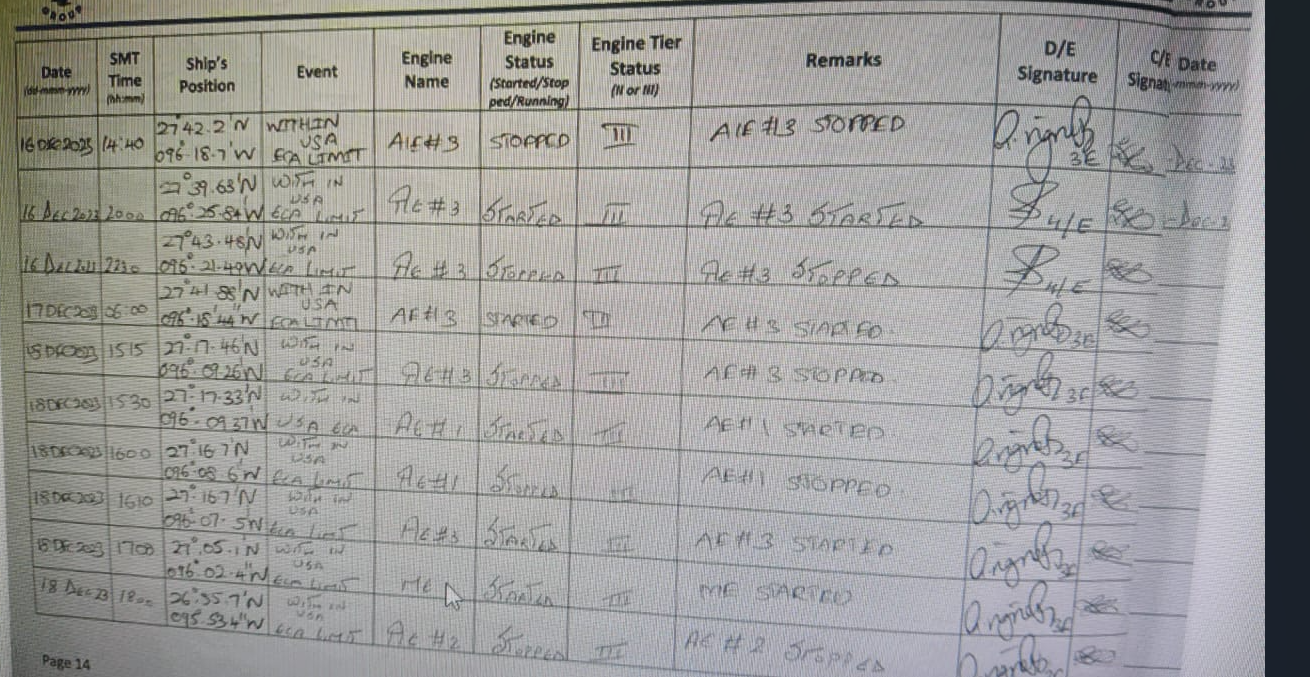 Date (dd-mmm-yyyy) SMT Time (hh:mm) Ship's Position Event Engine Name Engine Status (Started/Stopped/Running) Engine Tier Status (II or III) Remarks D/E Signature C/E Date
16 DEC 2023 14:40 27°42.2'N 096°18.7'W WITHIN USA ECA LIMIT A/E#3 STOPPED III A/E #3 STOPPED 3E
16 DEC 2023 2000 27°39.63'N 096°25.84'W WITH IN USA ECA LIMIT AE #3 STARTED III AE #3 STARTED 4/E
16 DEC 2230 27°43.48'N 096°21.49'W WITH IN USA ECA LIMIT AE #3 STOPPED III AE #3 STOPPED 4/E
17 DEC 2023 06:00 27°41.88'N WITH IN USA ECA LIMIT AE#3 STARTED III AE #3 STARTED 3E
DEC 2023 1515 27°17.46'N 096°09.26'N WITH IN USA ECA LIMIT AE#3 STOPPED III AE# 3 STOPPED 3E
18 DEC 2023 1530 27°17.33'N 096°09.37'W WITH IN USA ECA AE#1 STARTED III AE#1 STARTED 3E
18 DEC 2023 1600 27°16.7'N 096°08.6'W WITH IN USA ECA LIMIT AE#1 STOPPED AE#1 STOPPED 3E
18 DEC 2023 1610 27°16.7'N 096°07.5W WITH IN USA ECA LIMIT AE#3 STARTED III AE#3 STARTED 3E
18 DEC 2023 1700 27°.05.1'N 096°02.4"W WITH IN USA ECA LIMIT ME STARTED III ME STARTED 3E
18 DEC 23 1800 26°55.7'N 095.534"W WITH IN USA ECA LIMIT AE #2 STOPPED III AE #2 STOPPED
Page 14